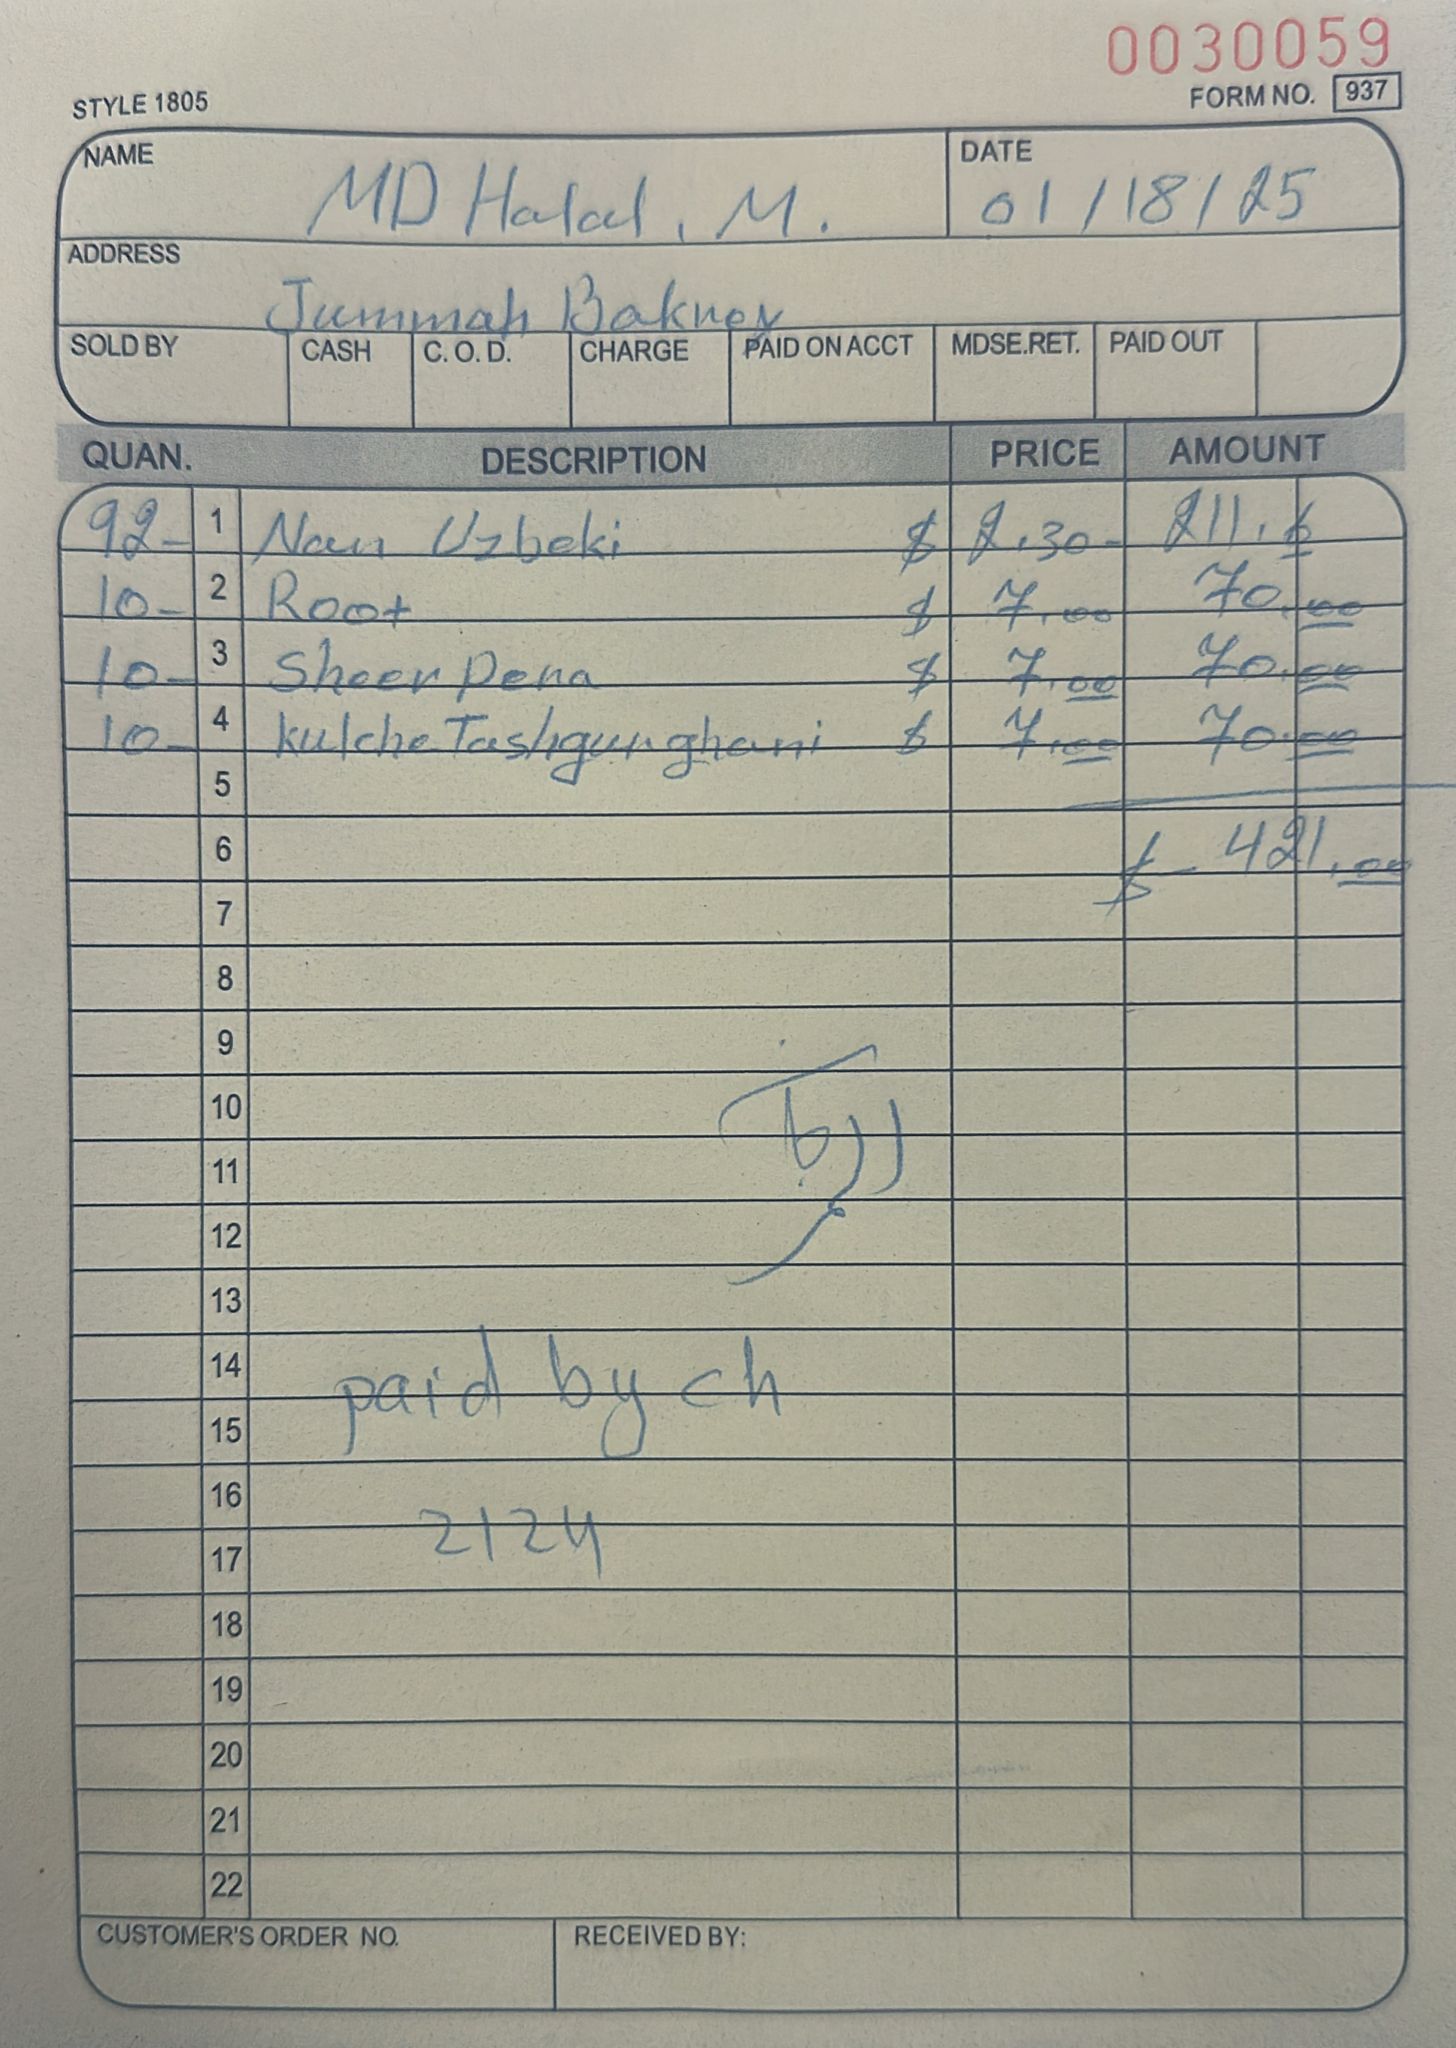 0030059
STYLE 1805 FORM NO. 937
NAME MD Halal, M. DATE 01/18/25
ADDRESS Jummah Bakrey
SOLD BY CASH C. O. D. CHARGE PAID ON ACCT MDSE.RET. PAID OUT
QUAN. DESCRIPTION PRICE AMOUNT
92- 1 Nan Uzbeki $ 2.30- 211.6
10- 2 Root $ 7.00 70.00
10- 3 Sheer Pera $ 7.00 70.00
10- 4 Kulche Tashqurghani $ 7.00 70.00
5
6 $- 421.00
7
8
9
10
11
12
13
14 paid by ch
15
16
17 2124
18
19
20
21
22
CUSTOMER'S ORDER NO. RECEIVED BY: